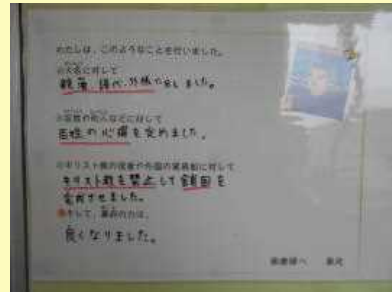 わたしは、このようなことを行いました。
①大名に対して
親藩、譜代、外様に分しました。
②百姓や町人などに対して
百姓の心得を定めました。
③キリスト教の信者や外国の貿易船に対して
キリスト教を禁止して鎖国を
完成させました。
そして、幕府の力は、
良くなりました。